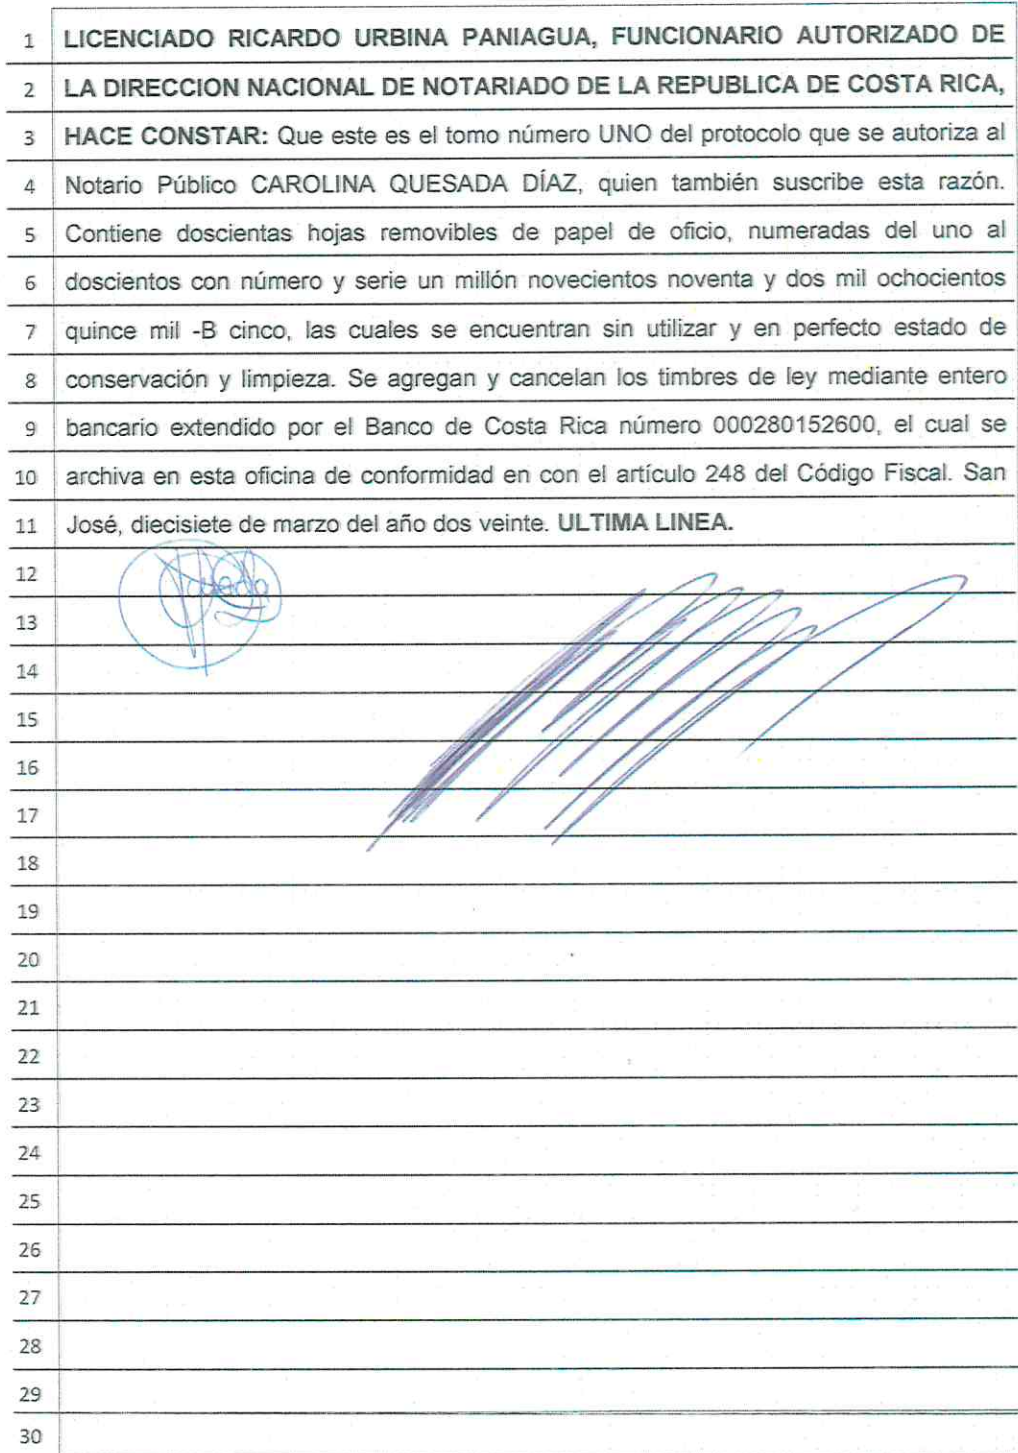 1 LICENCIADO RICARDO URBINA PANIAGUA, FUNCIONARIO AUTORIZADO DE
2 LA DIRECCION NACIONAL DE NOTARIADO DE LA REPUBLICA DE COSTA RICA,
3 HACE CONSTAR: Que este es el tomo número UNO del protocolo que se autoriza al
4 Notario Público CAROLINA QUESADA DÍAZ, quien también suscribe esta razón.
5 Contiene doscientas hojas removibles de papel de oficio, numeradas del uno al
6 doscientos con número y serie un millón novecientos noventa y dos mil ochocientos
7 quince mil -B cinco, las cuales se encuentran sin utilizar y en perfecto estado de
8 conservación y limpieza. Se agregan y cancelan los timbres de ley mediante entero
9 bancario extendido por el Banco de Costa Rica número 000280152600, el cual se
10 archiva en esta oficina de conformidad en con el artículo 248 del Código Fiscal. San
11 José, diecisiete de marzo del año dos veinte. ULTIMA LINEA.
12
13
14
15
16
17
18
19
20
21
22
23
24
25
26
27
28
29
30